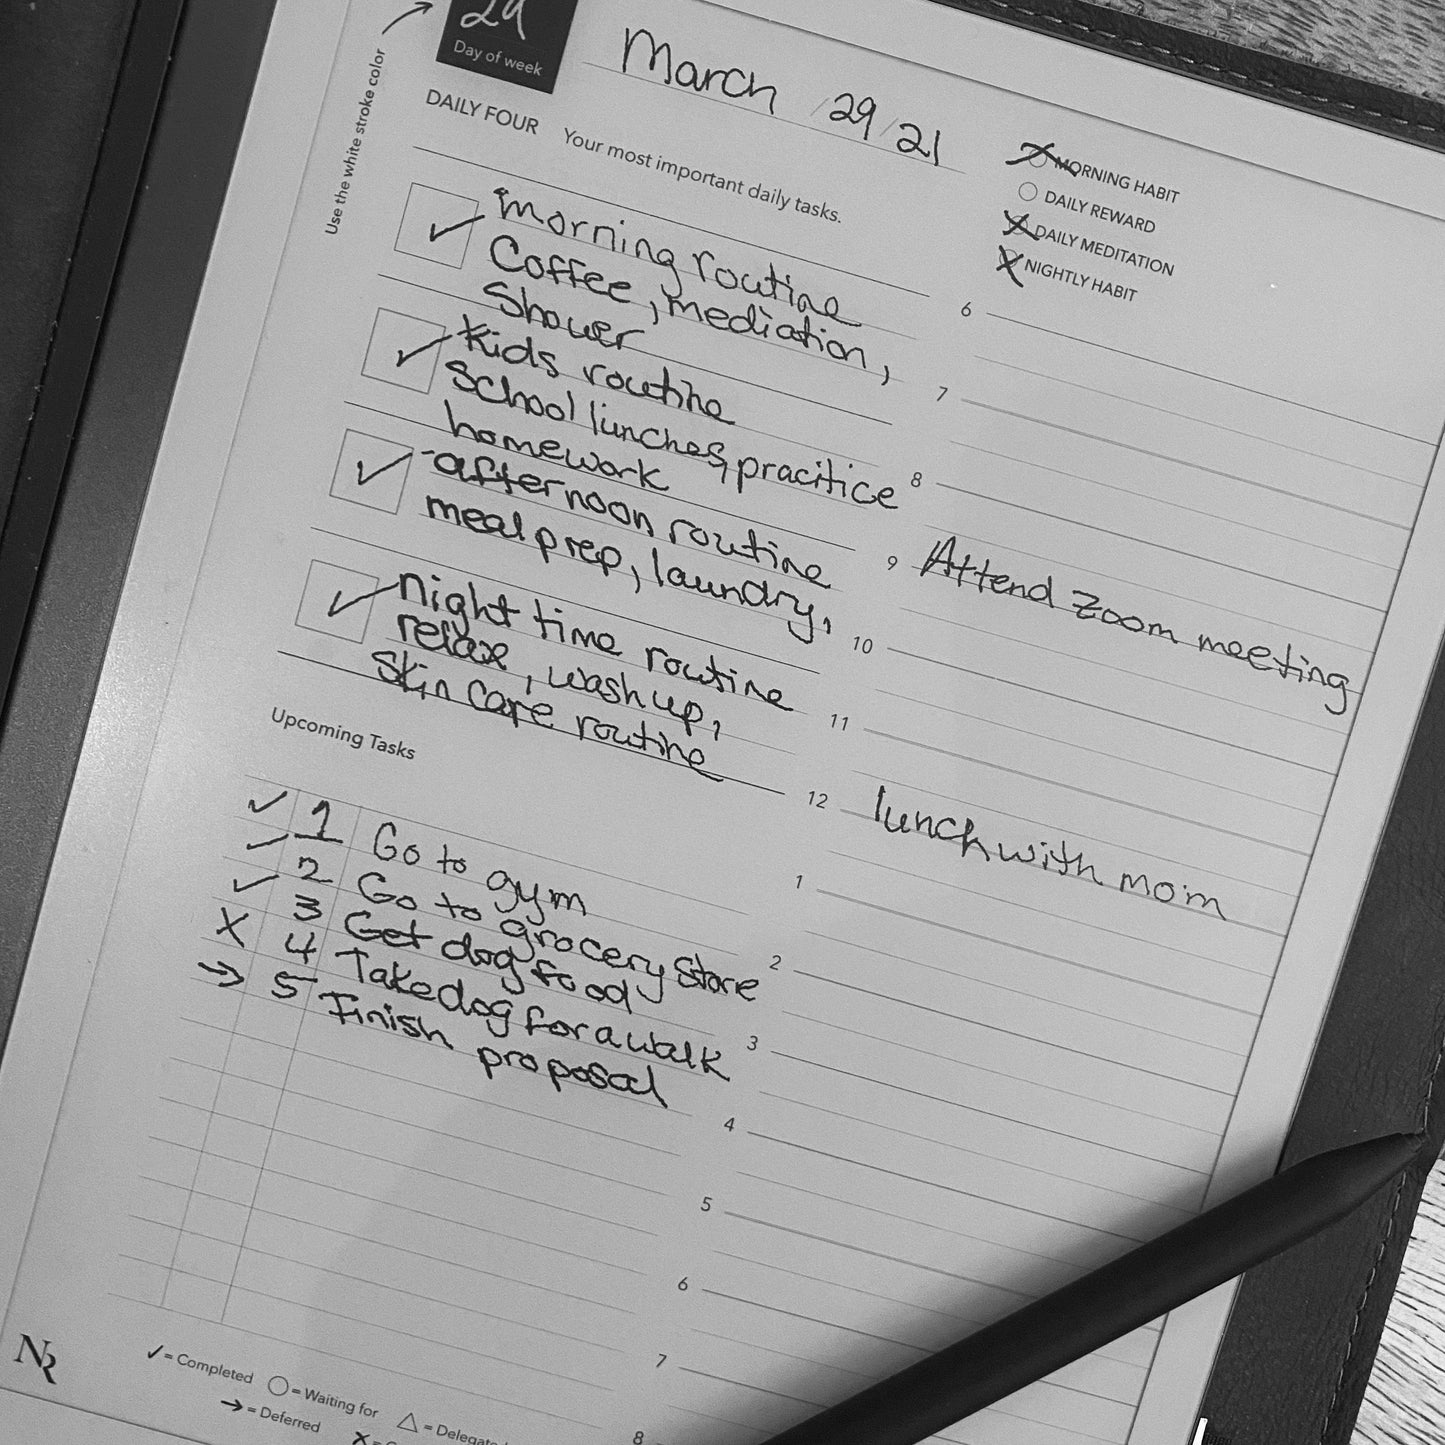 29
Day of week
Use the white stroke color
March /29/21
DAILY FOUR Your most important daily tasks.
MORNING HABIT
DAILY REWARD
DAILY MEDITATION
NIGHTLY HABIT
✓ morning routine
Coffee, mediation,
Shower
✓ Kids routine
School lunches, pracitice
homework
✓ -afternoon routine
meal prep, laundry,
✓ night time routine
relax, wash up,
Skin care routine
Upcoming Tasks
✓ 1 Go to gym
✓ 2 Go to grocery Store
✓ 3 Get dog food
X 4 Take dog for a walk
→ 5 Finish proposal
6
7
8
9 Attend Zoom meeting
10
11
12 lunch with mom
1
2
3
4
5
6
7
8
NR
✓ = Completed ○ = Waiting for △ = Delegated
→ = Deferred X =